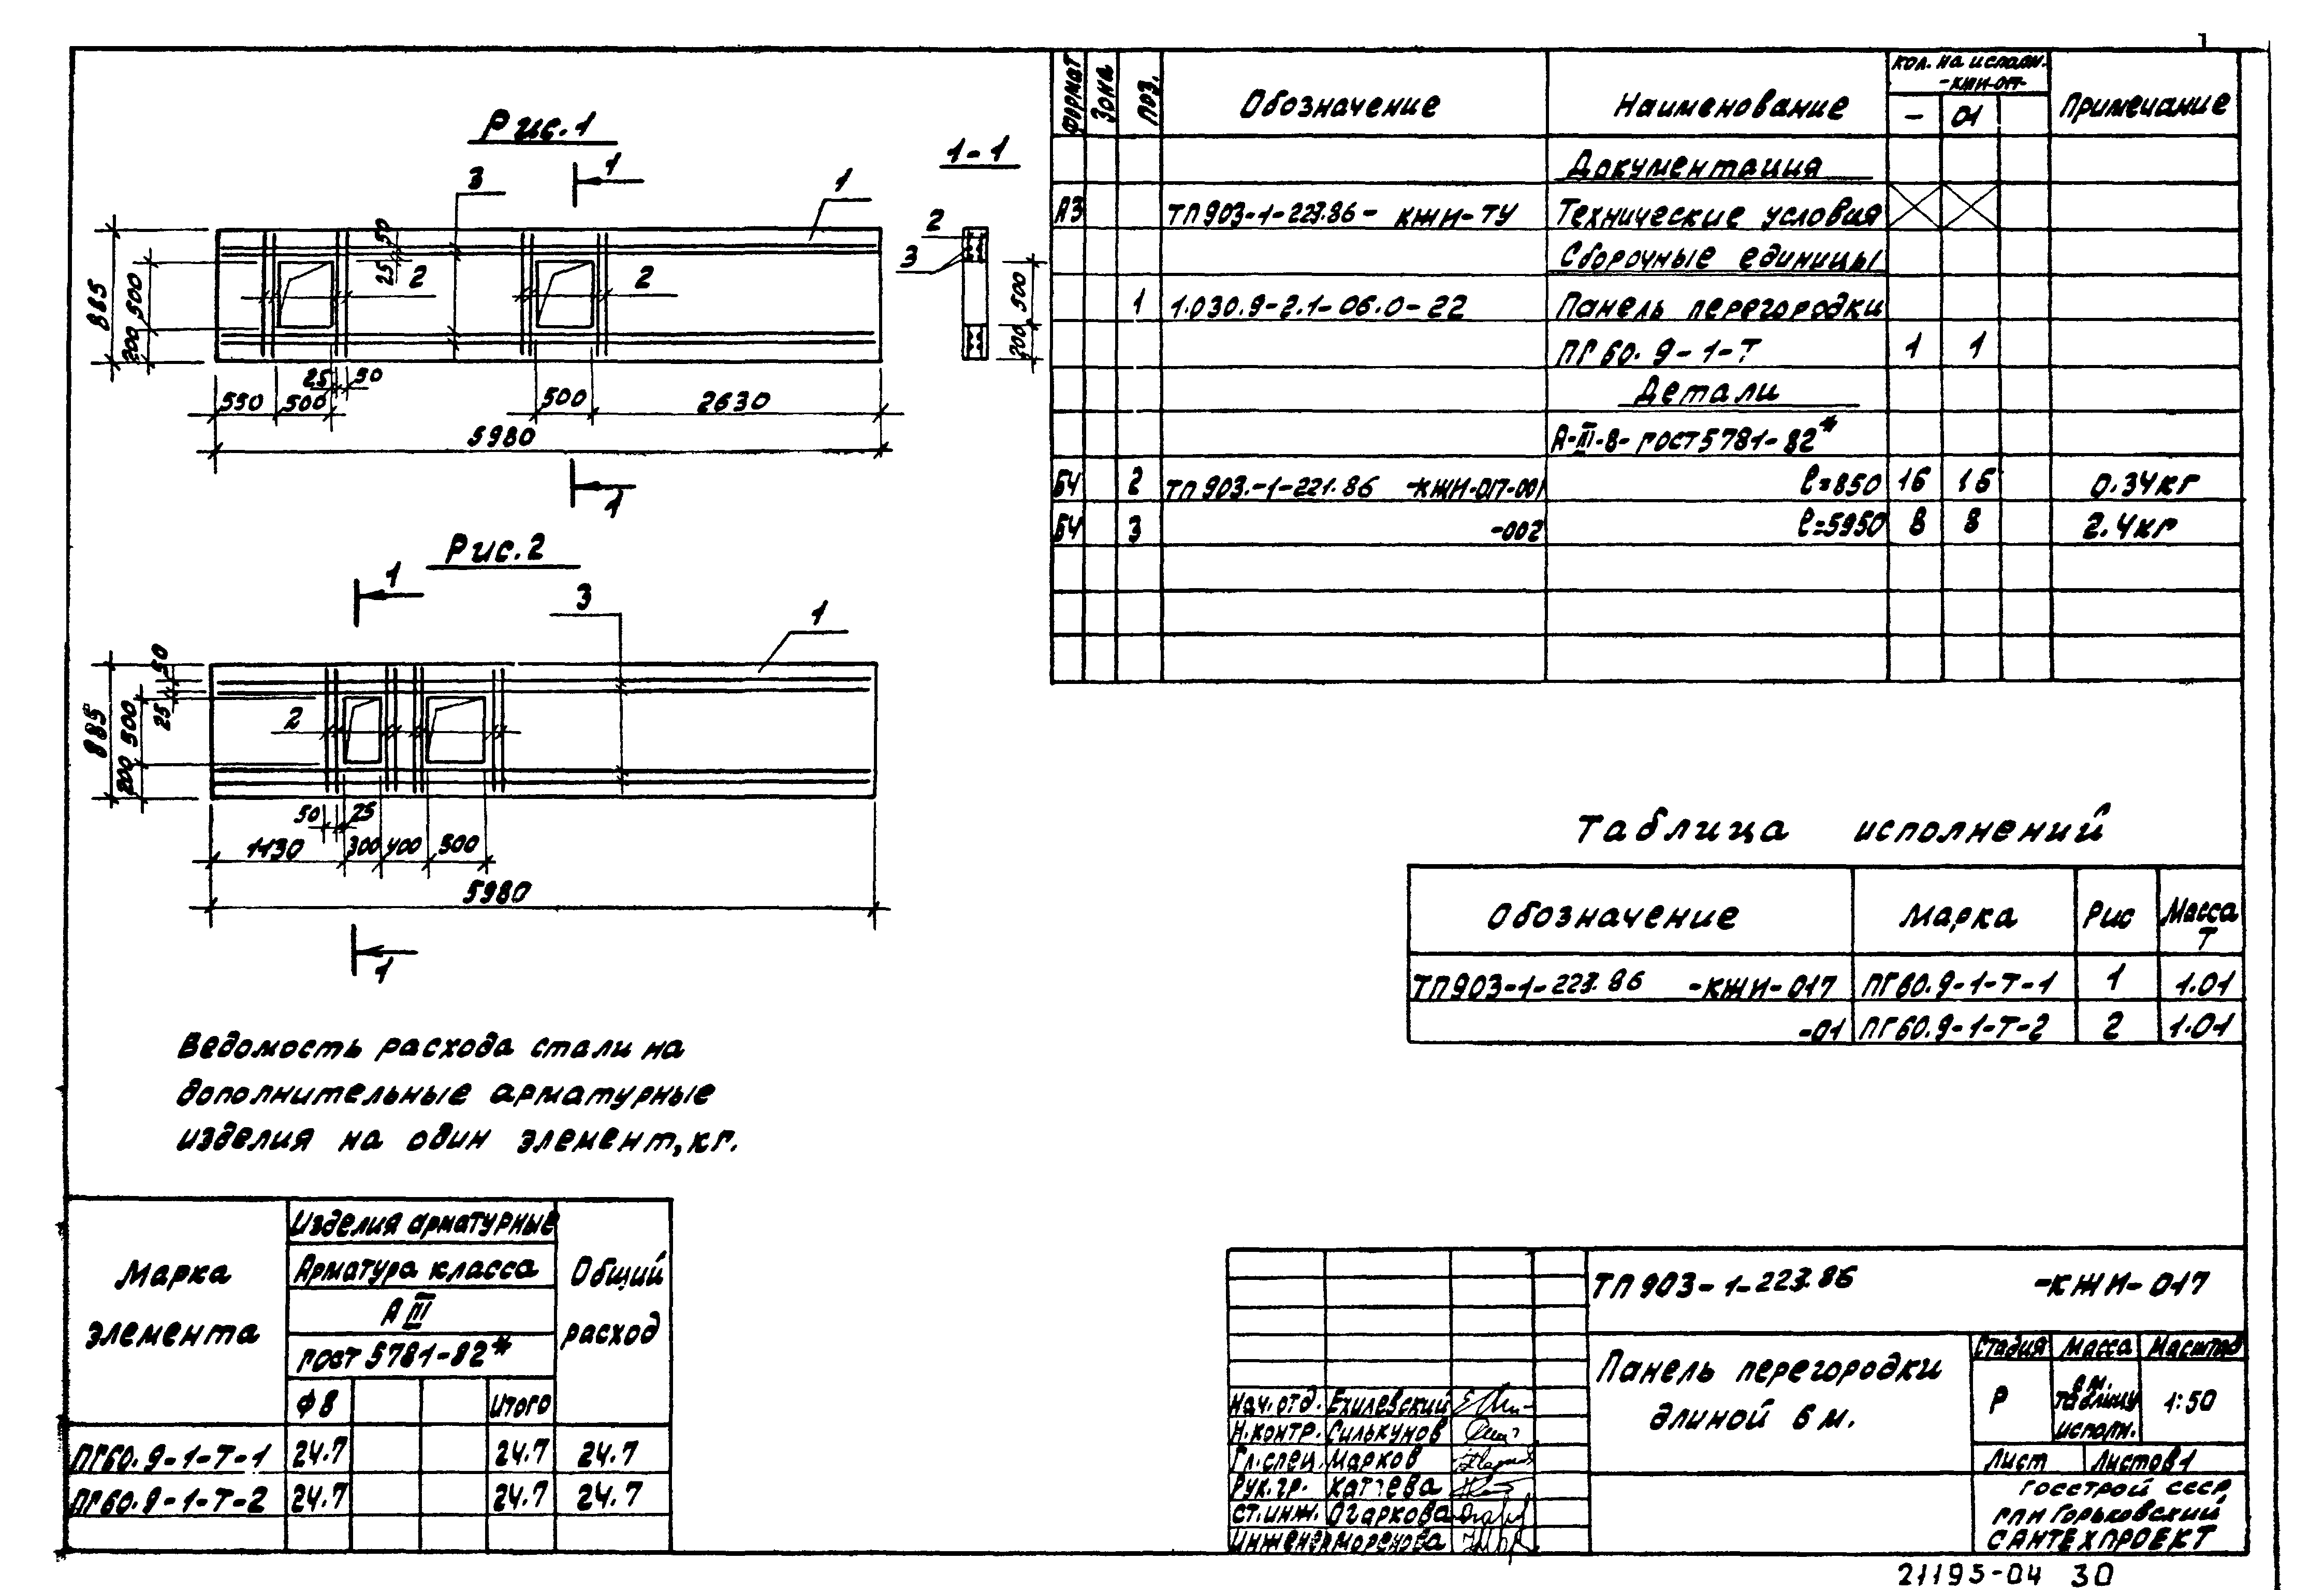 Рис.1
1
1-1
3
1
2
3
50
25
2
2
885
500
200
500
200
25
50
550
500
500
2630
5980
1
Рис.2
1
3
1
50
25
885
500
200
2
50
25
1130
300
400
500
5980
1
Формат
Зона
Поз.
Обозначение
Наименование
Кол. на исполн.
-КЖИ-017-
-
01
Примечание
Документация
А3 ТП 903-1-223.86- КЖИ-ТУ Технические условия
Сборочные единицы
1 1.030.9-2.1-06.0-22 Панель перегородки
ПГ 60.9-1-Т 1 1
Детали
А-III-8-ГОСТ 5781-82*
БЧ 2 ТП 903.-1-221.86 -КЖИ-017-001 ℓ=850 16 16 0.34кг
БЧ 3 -002 ℓ=5950 8 8 2.4кг
Таблица исполнений
Обозначение Марка Рис Масса
Т
ТП903-1-223.86 -КЖИ-017 ПГ60.9-1-Т-1 1 1.01
-01 ПГ60.9-1-Т-2 2 1.01
Ведомость расхода стали на
дополнительные арматурные
изделия на один элемент, кг.
Марка
элемента
Изделия арматурные
Арматура класса
А III
ГОСТ 5781-82*
Общий
расход
ф8 Итого
ПГ60.9-1-Т-1 24.7 24.7 24.7
ПГ60.9-1-Т-2 24.7 24.7 24.7
ТП 903-1-223.86 -КЖИ-017
Панель перегородки
длиной 6 м.
Стадия Масса Масштаб
Р
см.
таблицу
исполн.
1:50
Лист Листов 1
Нач.отд. Ехилевский
Н.контр. Силькунов
Гл.спец. Марков
Рук.гр.
Ст.инж. Огаркова
Инженер
Госстрой СССР
ГПИ Горьковский
САНТЕХПРОЕКТ
21193-04 30